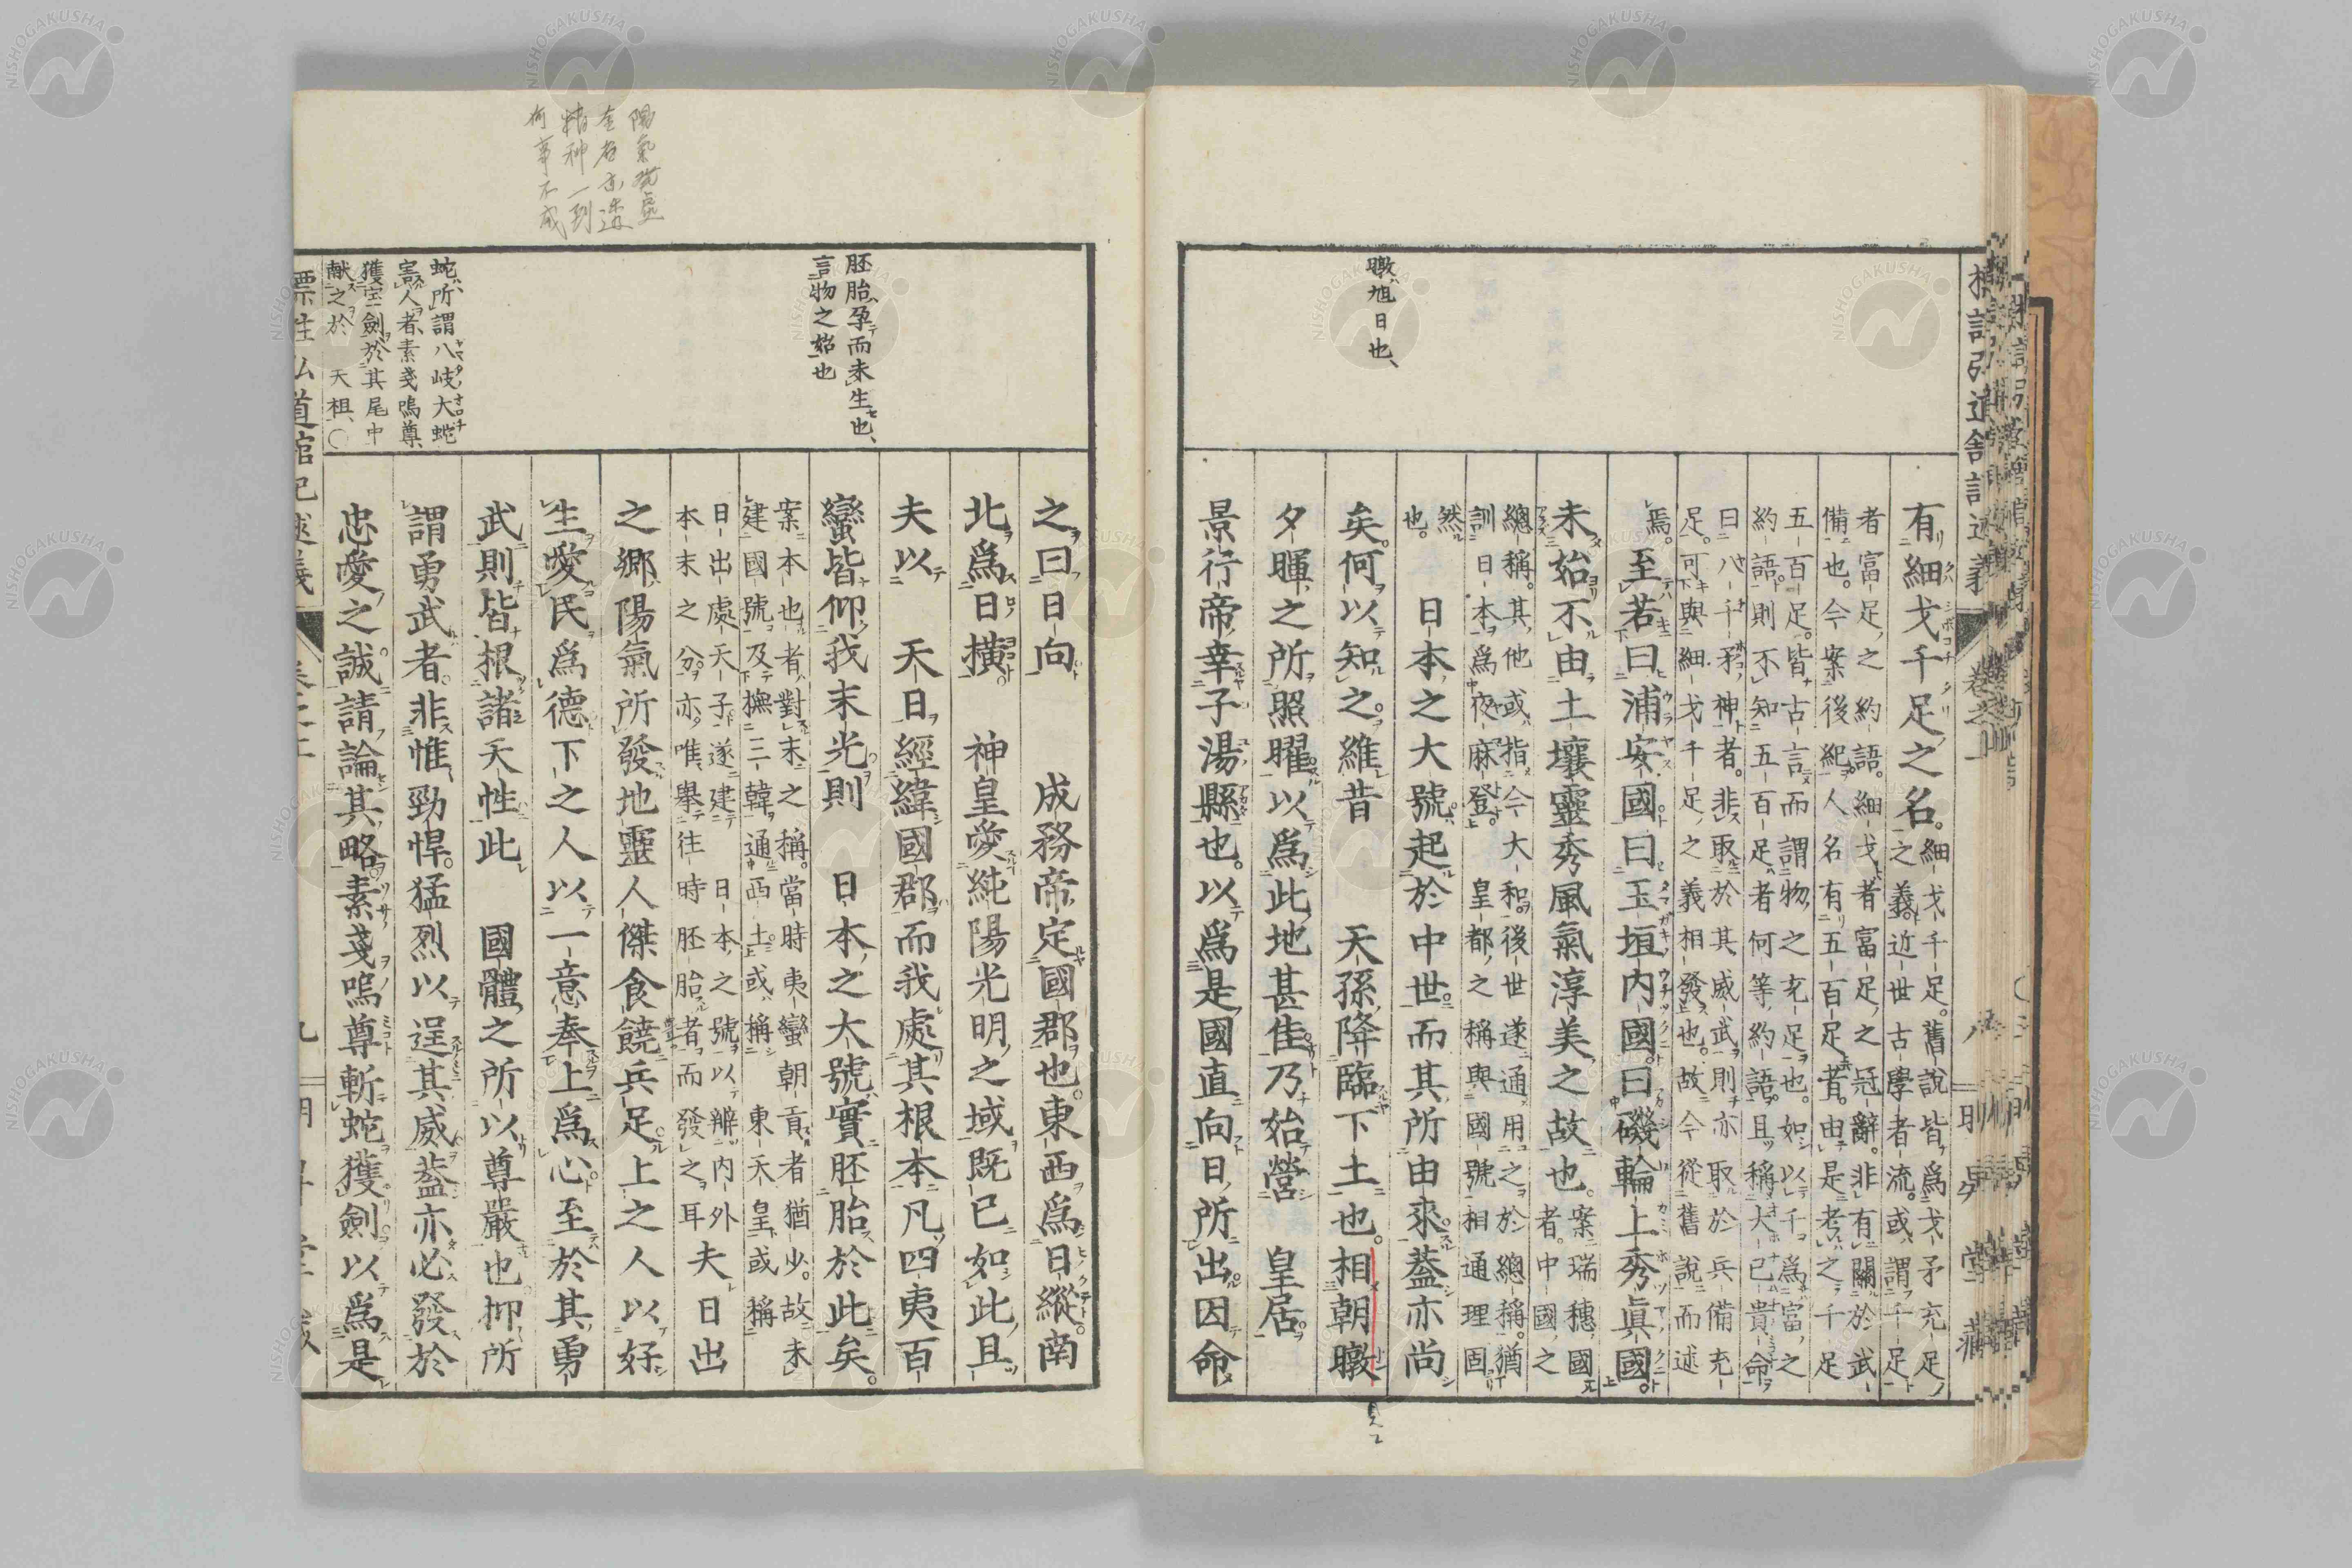 標註弘道舘記述義
卷之上
明昇堂藏
暾、旭日也、
有細戈千足之名。細戈千足。舊說皆爲戈矛充足
之義。近世古學者流。或謂千足
者富足之約語。細戈者富足之冠辭。非有關於武
備也。今案後紀人名有五百足者。由是考之千足
五百足。皆古言而謂物之充足也。如以千爲富之
約語則不知五百足者何等約語。且稱大己貴命
曰八千矛神者。非取於其威武則亦取於兵備充
足。可與細戈千足之義相發也。故今從舊說而述
焉。至若曰浦安國曰玉垣内國曰磯輪上秀眞國。
未始不由土壤靈秀風氣淳美之故也。案瑞穗國
者。中國之
總稱。其他或指今大和。後世遂通用之於總稱。猶
訓日本爲夜麻登。皇都之稱與國號相通理固
然
也。
日本之大號起於中世而其所由來蓋亦尚
矣。何以知之。維昔天孫降臨下土也。相朝暾
夕暉之所照曜以爲此地甚佳乃始營皇居。
景行帝幸子湯縣也。以爲是國直向日所出因命
陽氣發處
金石亦透
精神一到
何事不成
胚胎、孕而未生也、
言物之始也
蛇、所謂八岐大蛇
害人者、素戔嗚尊
獲宝劍於其尾中
献之於天祖、○
之曰日向成務帝定國郡也。東西爲日縱。南
北爲日橫。神皇愛純陽光明之域既已如此且
夫以天日經緯國郡而我處其根本凡四夷百
蠻皆仰我末光則日本之大號實胚胎於此矣。
案本也者對末之稱。當時夷蠻朝貢者猶少。故未
建國號及撫三韓通西土或稱東天皇或稱
日出處天子遂建日本之號以辨内外
本末之分亦唯擧往時胚胎者而發之耳夫日出
之鄉陽氣所發地靈人傑食饒兵足上之人以好
生愛民爲德下之人以一意奉上爲心至於其勇
武則皆根諸天性此國體之所以尊嚴也抑所
謂勇武者。非惟勁悍。猛烈以逞其威蓋亦必發於
忠愛之誠請論其略素戔嗚尊斬蛇獲劍以爲是